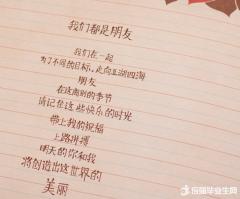 我们都是朋友
我们在一起
为了不同的目标，走向五湖四海
朋友
在这离别的季节
请记住这些快乐的时光
带上我的祝福
上路拼搏
明天的你和我
将创造出这世界的
美丽
应届毕业生网